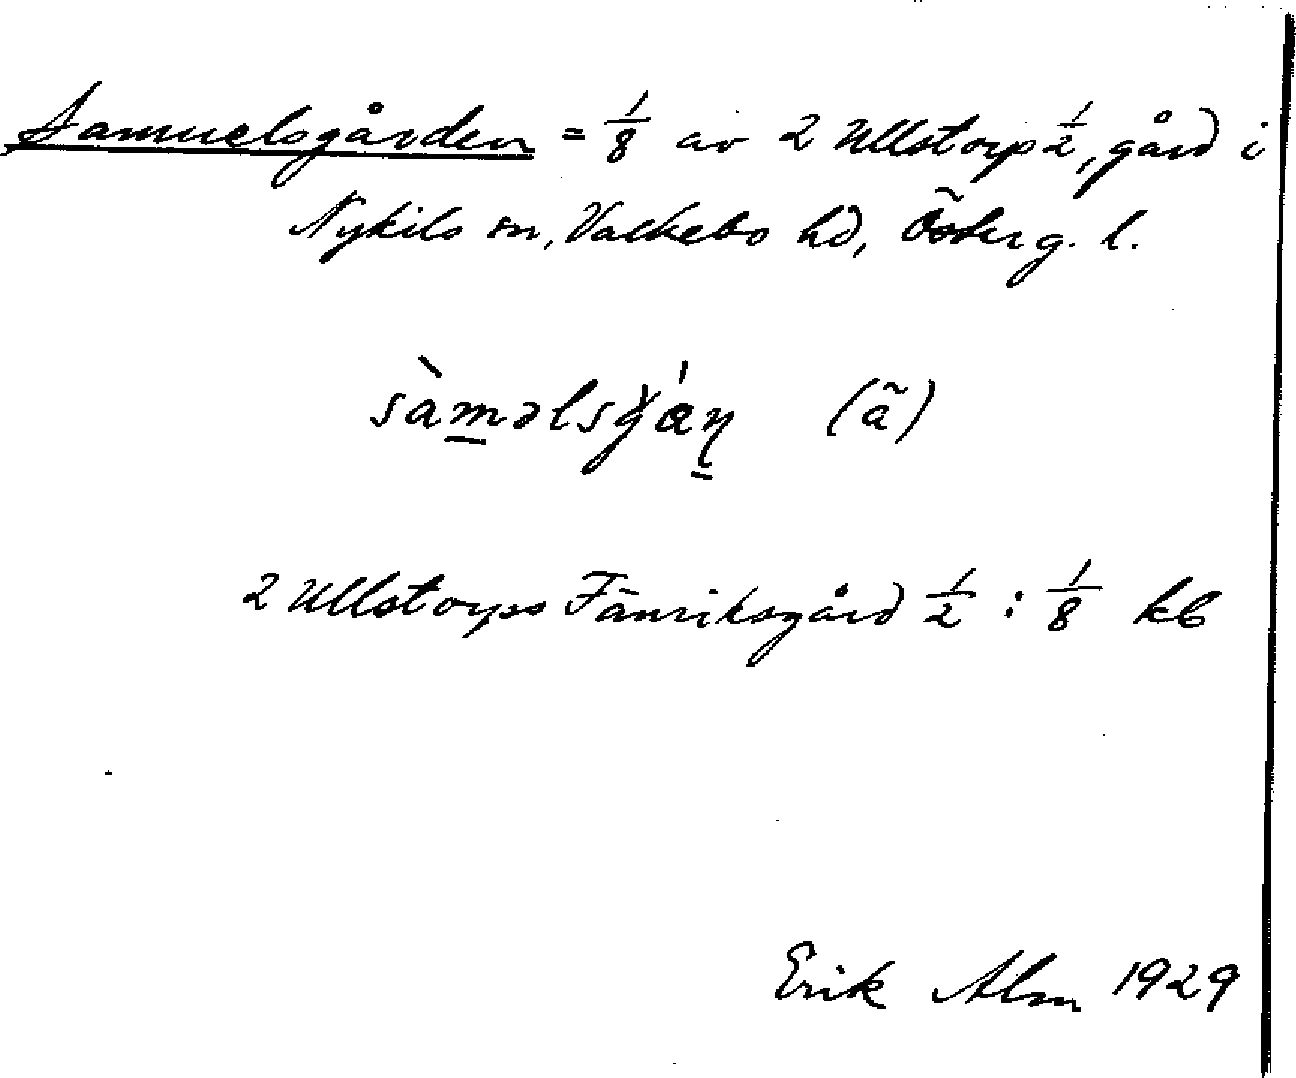 Samuelsgården = 1/8 av 2 Ullstorp 1/2, gård i
Nykils sn, Valkebo hd, Österg. l.
sàməlsgǻɳ (ã)
2 Ullstorps Fänriksgård 1/2 : 1/8 kb
Erik Alm 1929